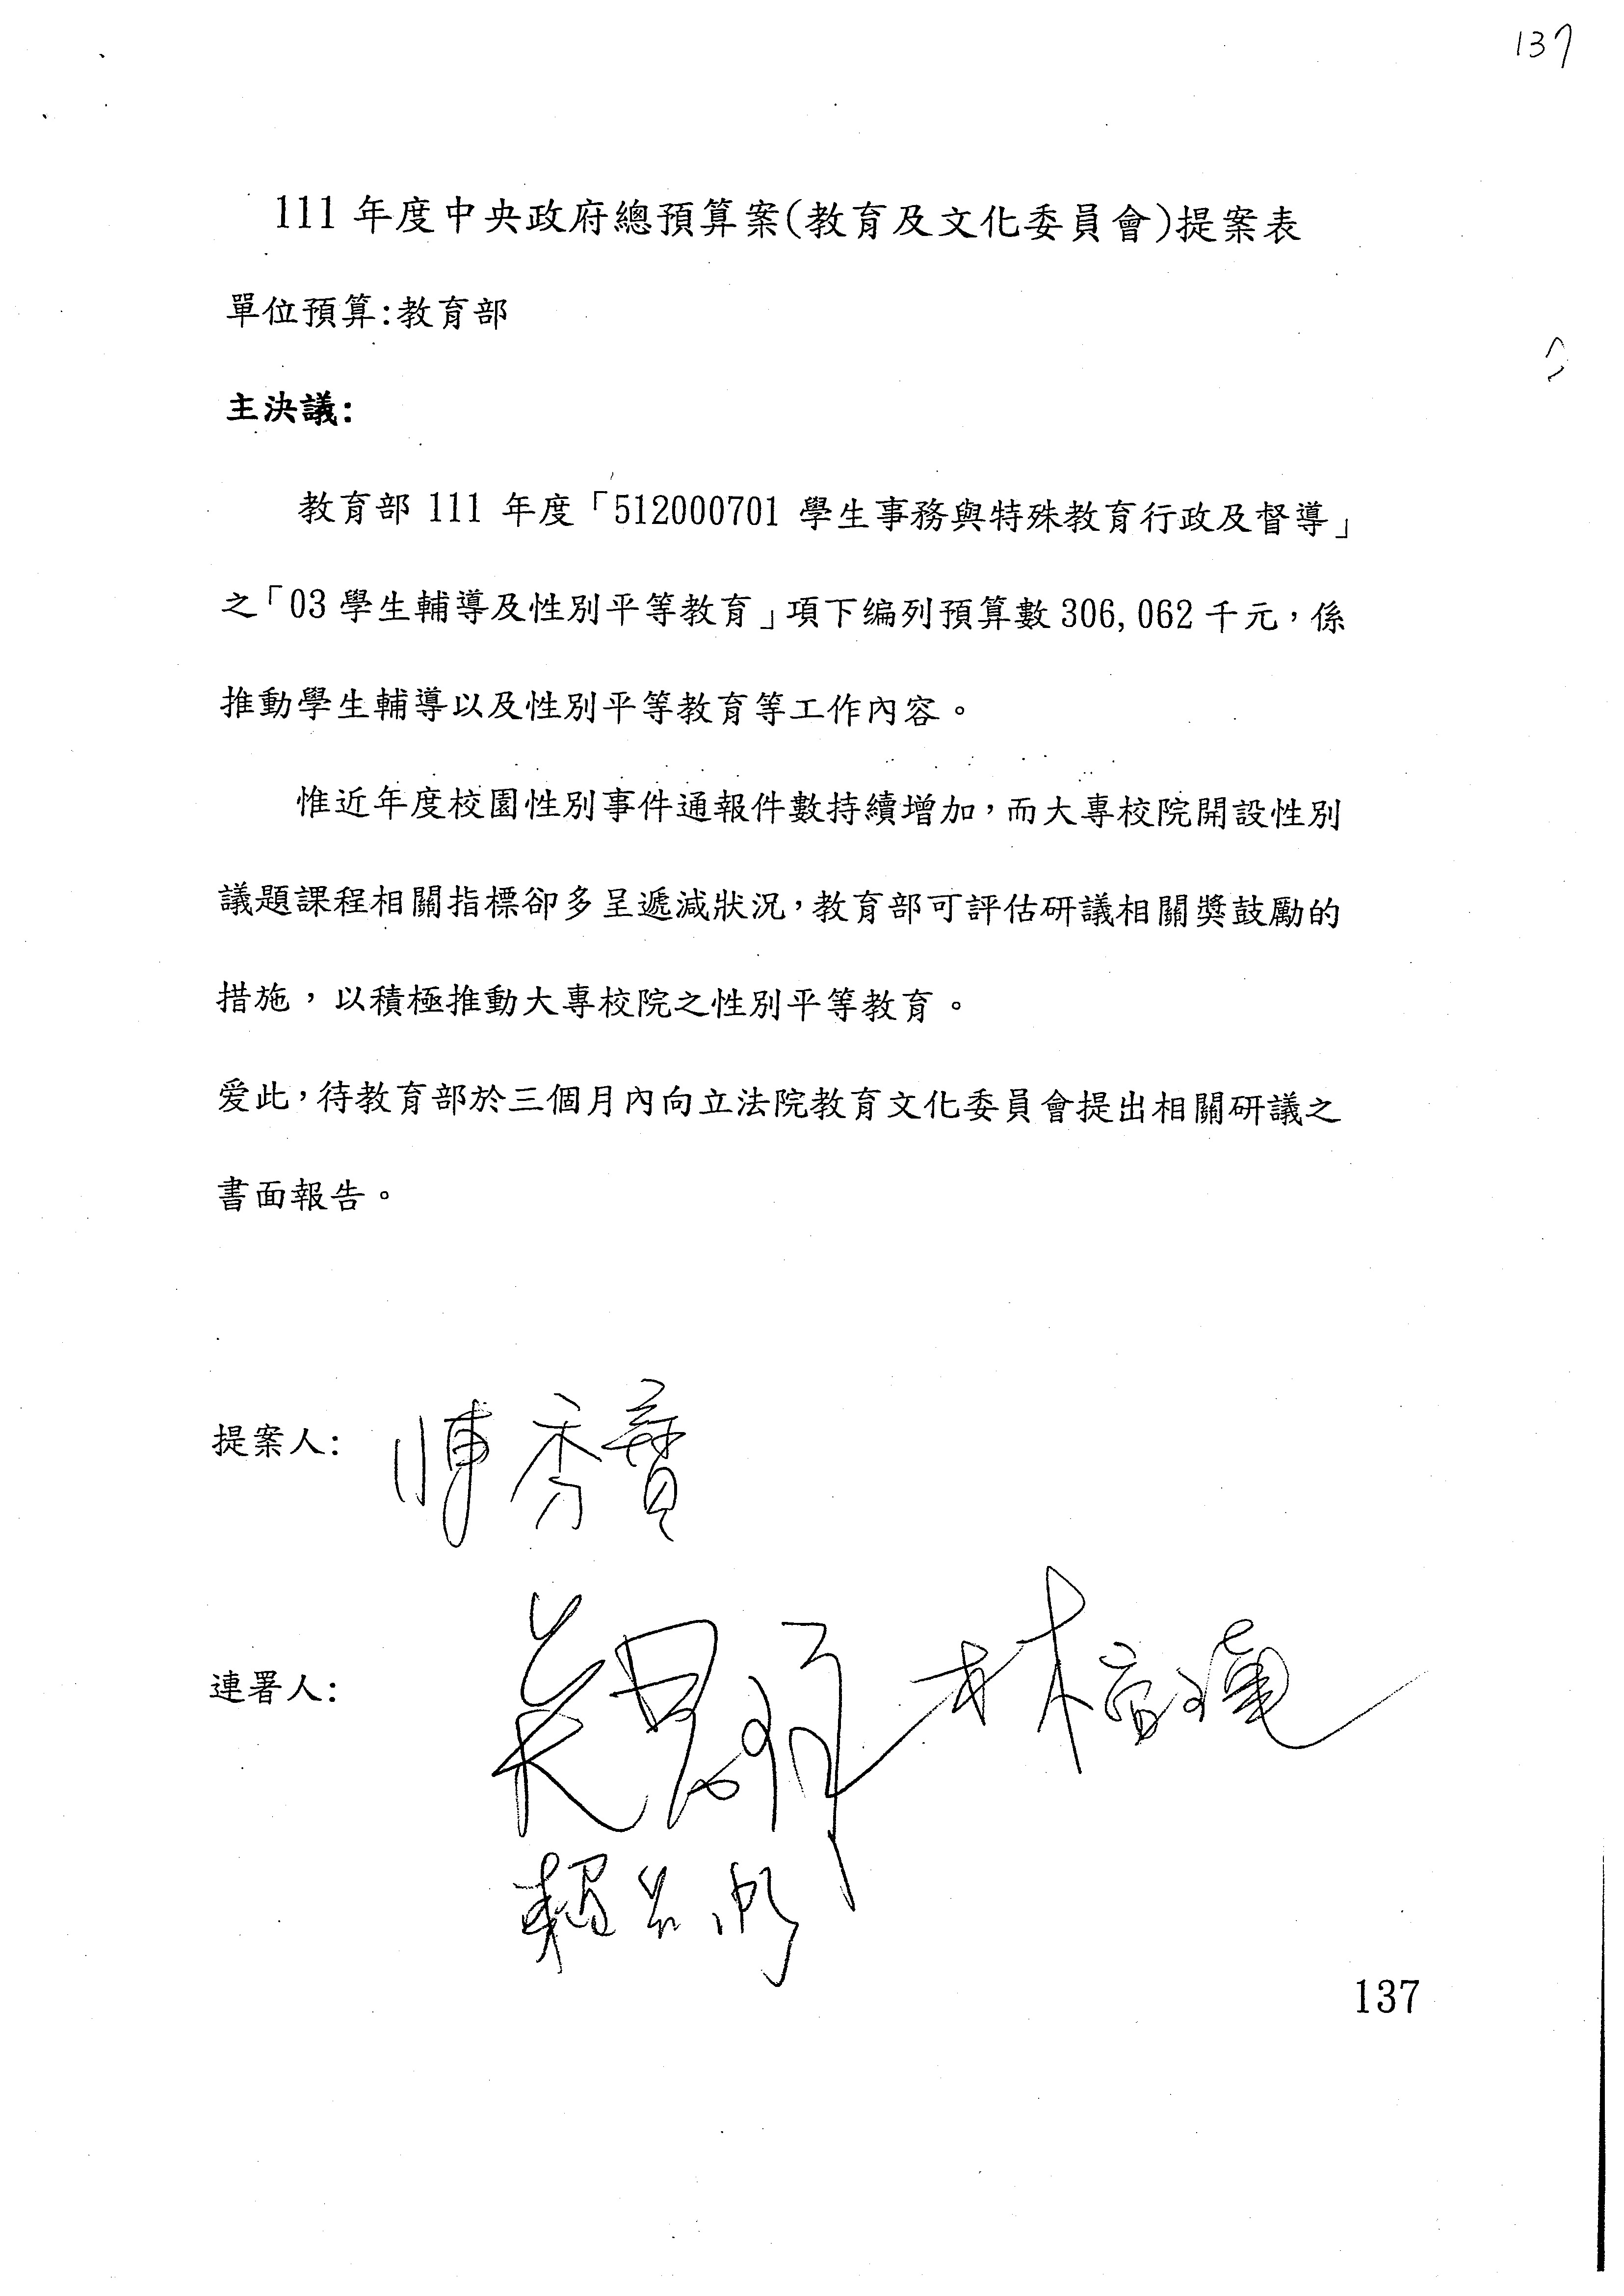 137
111 年度中央政府總預算案(教育及文化委員會)提案表
單位預算:教育部
主決議:
教育部 111 年度「512000701 學生事務與特殊教育行政及督導」
之「03 學生輔導及性別平等教育」項下編列預算數 306,062 千元,係
推動學生輔導以及性別平等教育等工作內容。
惟近年度校園性別事件通報件數持續增加,而大專校院開設性別
議題課程相關指標卻多呈遞減狀況,教育部可評估研議相關獎鼓勵的
措施,以積極推動大專校院之性別平等教育。
爰此,待教育部於三個月內向立法院教育文化委員會提出相關研議之
書面報告。
提案人: 陳秀寳
連署人: 吳思瑤 林宜瑾
賴品妤
137